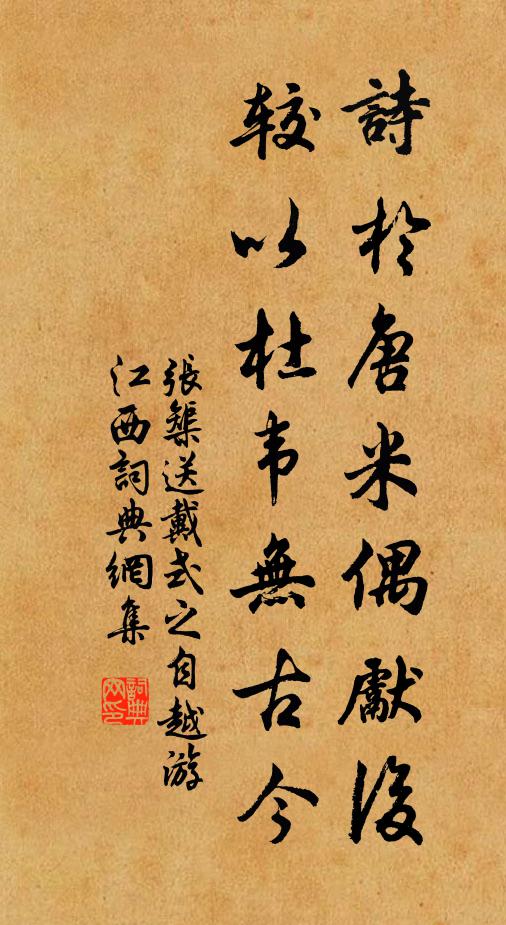 詩於唐米偶獻後
較以杜韋無古今
張榘送戴式之自越游
江西詞典網集
詞典
网印